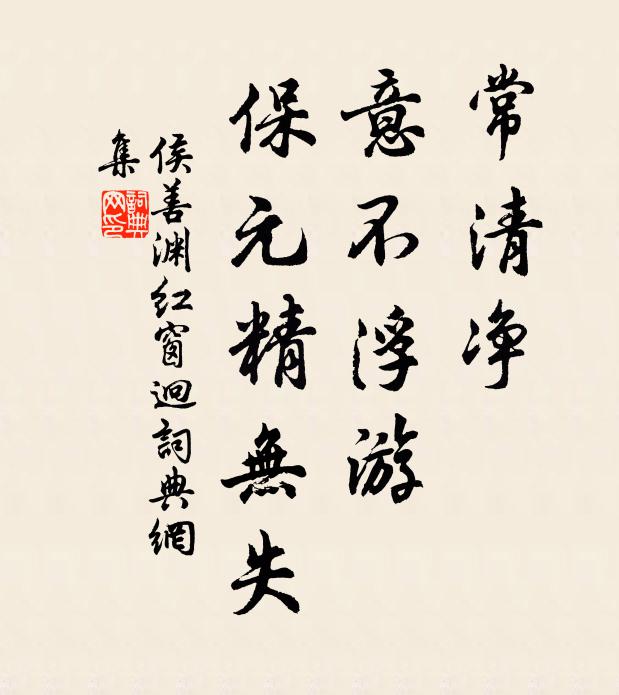 常清净
意不浮游
保元精無失
侯善渊红窗迥詞典網
集
詞典网印